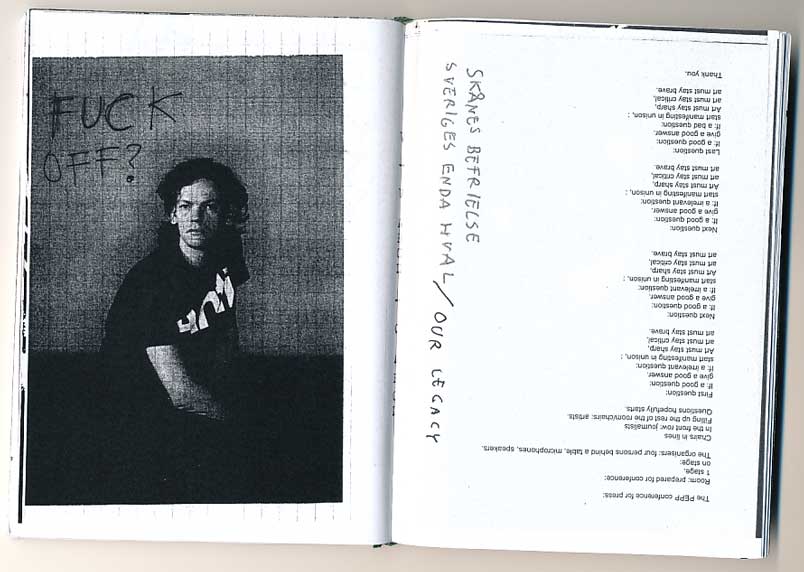 FUCK
OFF?
SKÅNES BEFRIELSE
SVERIGES ENDA HVAL / OUR LEGACY
The PEPP conference for press:
Room: prepared for conference:
1 stage.
on stage:
The organisers: four persons behind a table, microphones, speakers.
Chairs in lines
In the front row: journalists
Filling up the rest of the room/chairs: artists.
Questions hopefully starts.
First question:
If: a good question:
give a good answer.
If: a irrelevant question:
start manfesting in unison, ;
Art must stay sharp,
art must stay critical,
art must stay brave.
Next question:
If: a good question:
give a good answer.
If: a irrelevant question:
start manfesting in unison, ;
Art must stay sharp,
art must stay critical,
art must stay brave.
Next question:
If: a good question:
give a good answer.
If: a irrelevant question:
start manfesting in unison, ;
Art must stay sharp,
art must stay critical,
art must stay brave.
Last question:
If: a good question:
give a good answer.
If: a bad question:
start manfesting in unison, ;
Art must stay sharp,
art must stay critical,
art must stay brave.
Thank you.